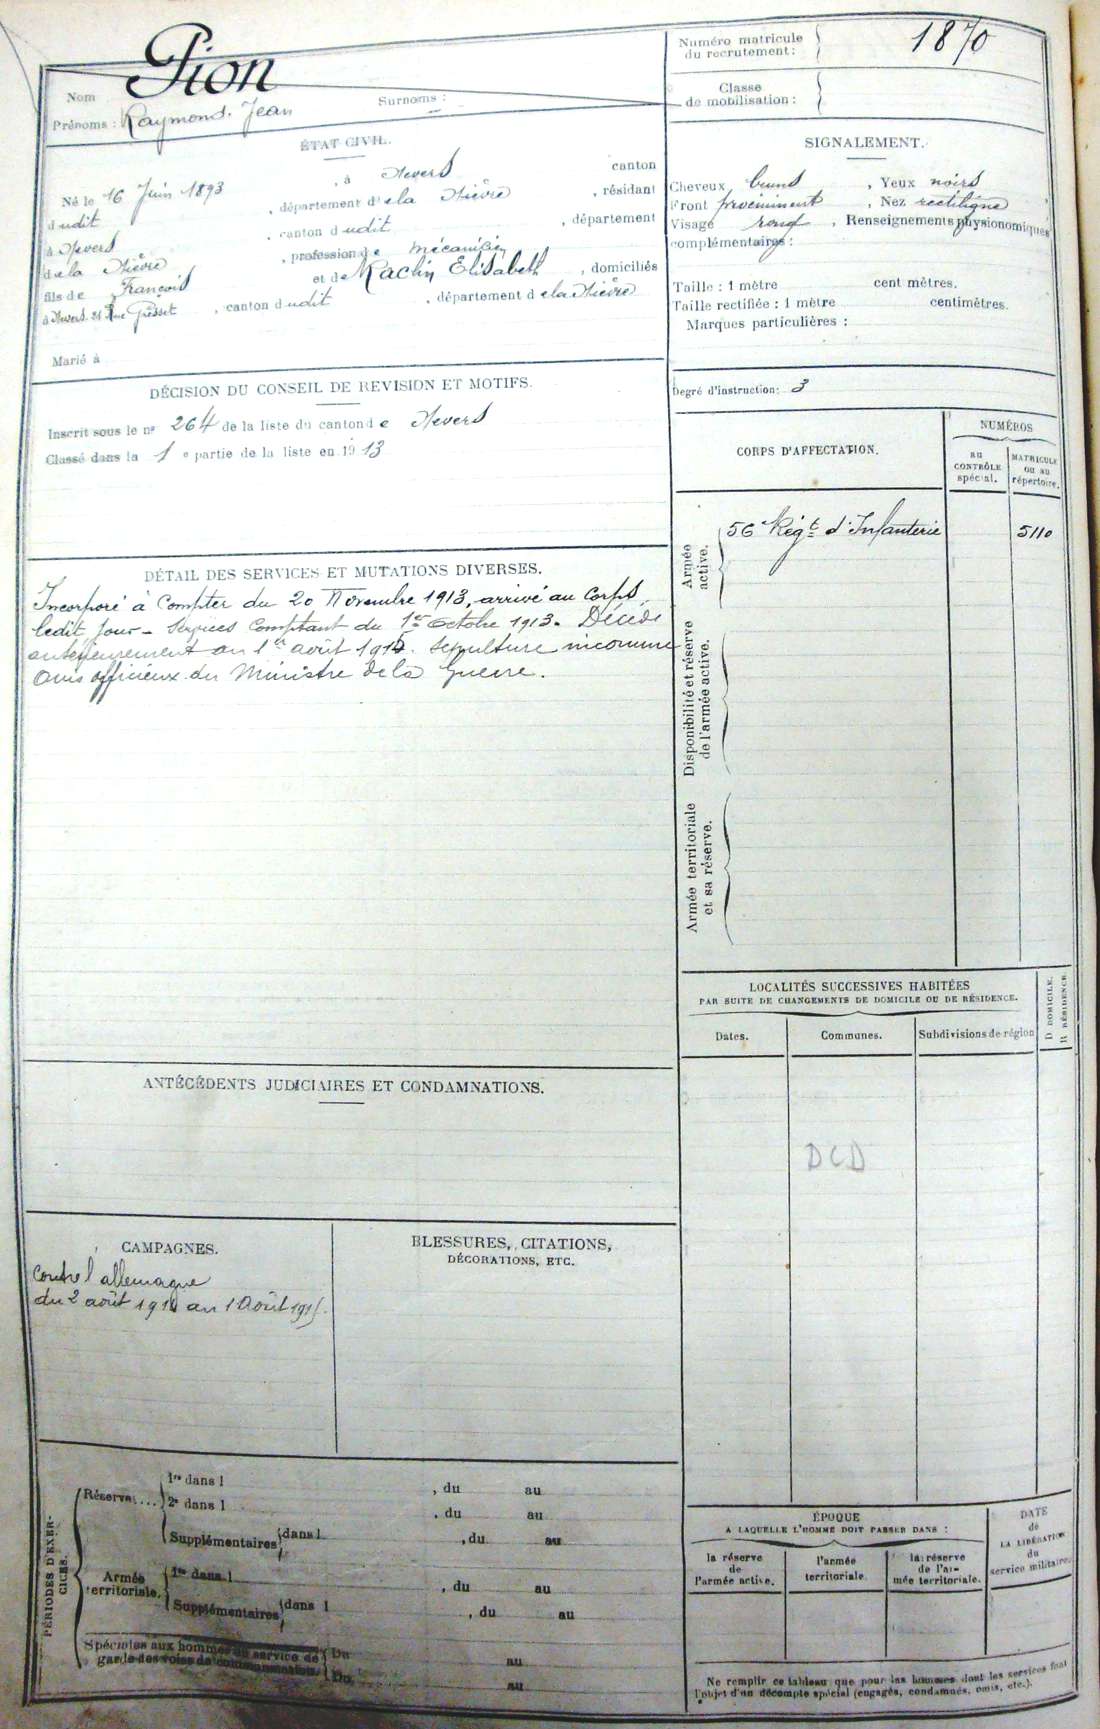 Pion
Nom
Prénoms : Raymond. Jean
Surnoms : –
Numéro matricule
du recrutement :
1870
Classe
de mobilisation :
ÉTAT CIVIL.
Né le 16 Juin 1893, à Nevers canton
dudit, département de la Nièvre, résidant
à Nevers, canton dudit, département
de la Nièvre, profession de mécanicien
fils de François et de Rachin Elisabeth, domiciliés
à Nevers. 21 Rue Gresset, canton dudit, département de la Nièvre
Marié à
SIGNALEMENT.
Cheveux bruns, Yeux noirs
Front proéminent, Nez rectiligne
Visage rond, Renseignements physionomiques
complémentaires :
Taille : 1 mètre cent mètres.
Taille rectifiée : 1 mètre centimètres.
Marques particulières :
Degré d'instruction : 3
DÉCISION DU CONSEIL DE REVISION ET MOTIFS.
Inscrit sous le no 264 de la liste du canton de Nevers
Classé dans la 1e partie de la liste en 1913
DÉTAIL DES SERVICES ET MUTATIONS DIVERSES.
Incorporé à Compter du 20 Novembre 1913, arrivé au Corps
ledit Jour – Services Comptant du 1er Octobre 1913. Décédé
antérieurement au 1er août 1915. sépulture inconnue
Avis officieux du Ministre de la Guerre.
CORPS D'AFFECTATION.
NUMÉROS
au
CONTRÔLE
spécial.
MATRICULE
ou au
répertoire.
Armée
active.
56 Régt d'Infanterie
5110
Disponibilité et réserve
de l'armée active.
Armée territoriale
et sa réserve.
LOCALITÉS SUCCESSIVES HABITÉES
PAR SUITE DE CHANGEMENTS DE DOMICILE OU DE RÉSIDENCE.
D DOMICILE.
R RÉSIDENCE.
Dates.
Communes.
Subdivisions de région
DCD
ANTÉCÉDENTS JUDICIAIRES ET CONDAMNATIONS.
CAMPAGNES.
Contre l'allemagne
du 2 août 1914 au 1 Août 1915.
BLESSURES, CITATIONS,
DÉCORATIONS, ETC.
PÉRIODES D'EXER-
CICES.
Réserve....
1re dans 1 , du au
2e dans 1 , du au
Supplémentaires dans 1 , du au
Armée
territoriale.
1re dans 1 , du au
Supplémentaires dans 1 , du au
Spéciales aux hommes du service de
garde des voies de communication.
Du au
Du au
ÉPOQUE
A LAQUELLE L'HOMME DOIT PASSER DANS :
la réserve
de
l'armée active.
l'armée
territoriale
la réserve
de l'ar-
mée territoriale.
DATE
de
LA LIBÉRATION
du
service militaire.
Ne remplir ce tableau que pour les hommes dont les services font
l'objet d'un décompte spécial (engagés, condamnés, omis, etc.).